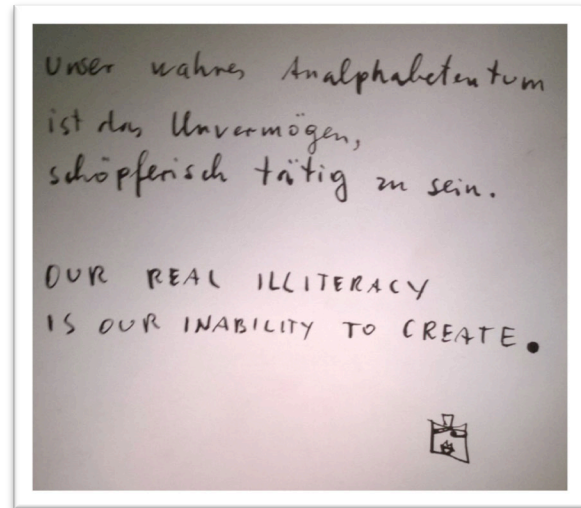 Unser wahres Analphabetentum
ist das Unvermögen,
schöpferisch tätig zu sein.
OUR REAL ILLITERACY
IS OUR INABILITY TO CREATE.